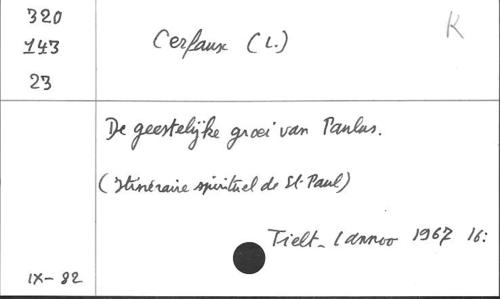 320
143
23
Cerfaux (L.)
K
De geestelijke groei van Paulus.
(Itinéraire spirituel de St-Paul)
Tielt- Lannoo 1967 16:
IX- 82